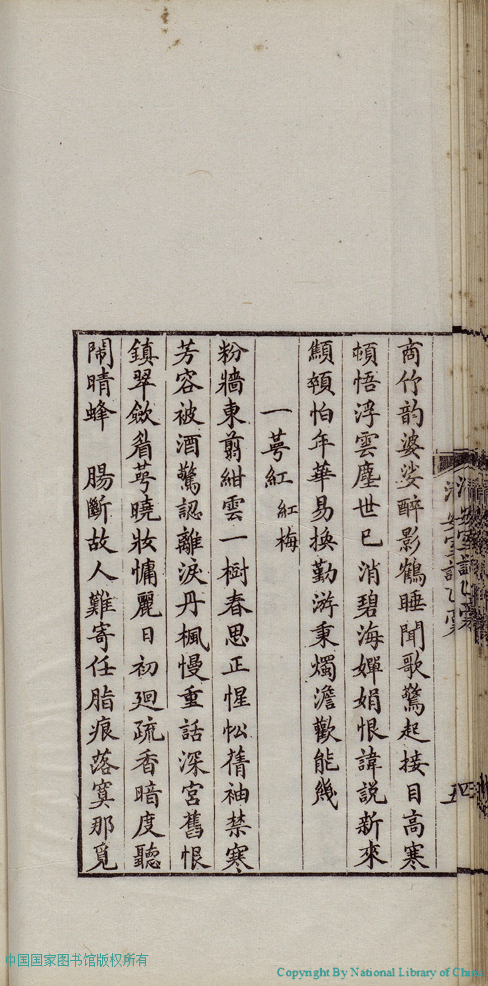 商竹韵婆娑醉影鶴睡聞歌驚起接目高寒
頓悟浮雲塵世已消碧海嬋娟恨諱説新來
顦顇怕年華易換勤游秉燭澹歡能幾
一萼紅 紅梅
粉牆東翦紺雲一樹春思正惺忪蒨袖禁寒
芳容被酒驚認離淚丹楓慢重話深宮舊恨
鎮翠斂眉萼曉妝慵麗日初廻疏香暗度聽
閙晴蜂 腸斷故人難寄任脂痕落寞那覓
中国国家图书馆版权所有
Copyright By National Library of Chin